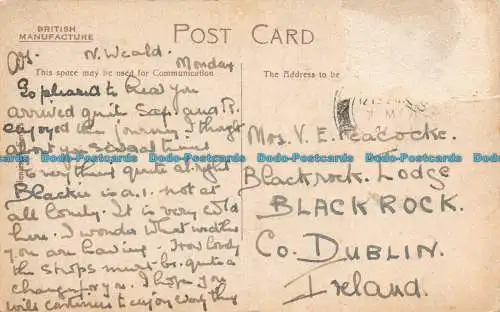 BRITISH
MANUFACTURE
POST CARD
N. Weald.
Monday
This space may be used for Communication
The Address to be
So pleased to hear you
arrived quite safe and
enjoyed the journey. I thought
about you several times
everything quite all right
Blackie is a.1. not at
all lonely. It is very cold
here. I wonder what weather
you are having. How lovely
the shops must be. quite a
change for you. I hope you
will continue to enjoy everything
Mrs. V. E. Peacocke.
Blackrock. Lodge
BLACKROCK.
Co. DUBLIN.
Ireland.
www.Dado-Postcards.com